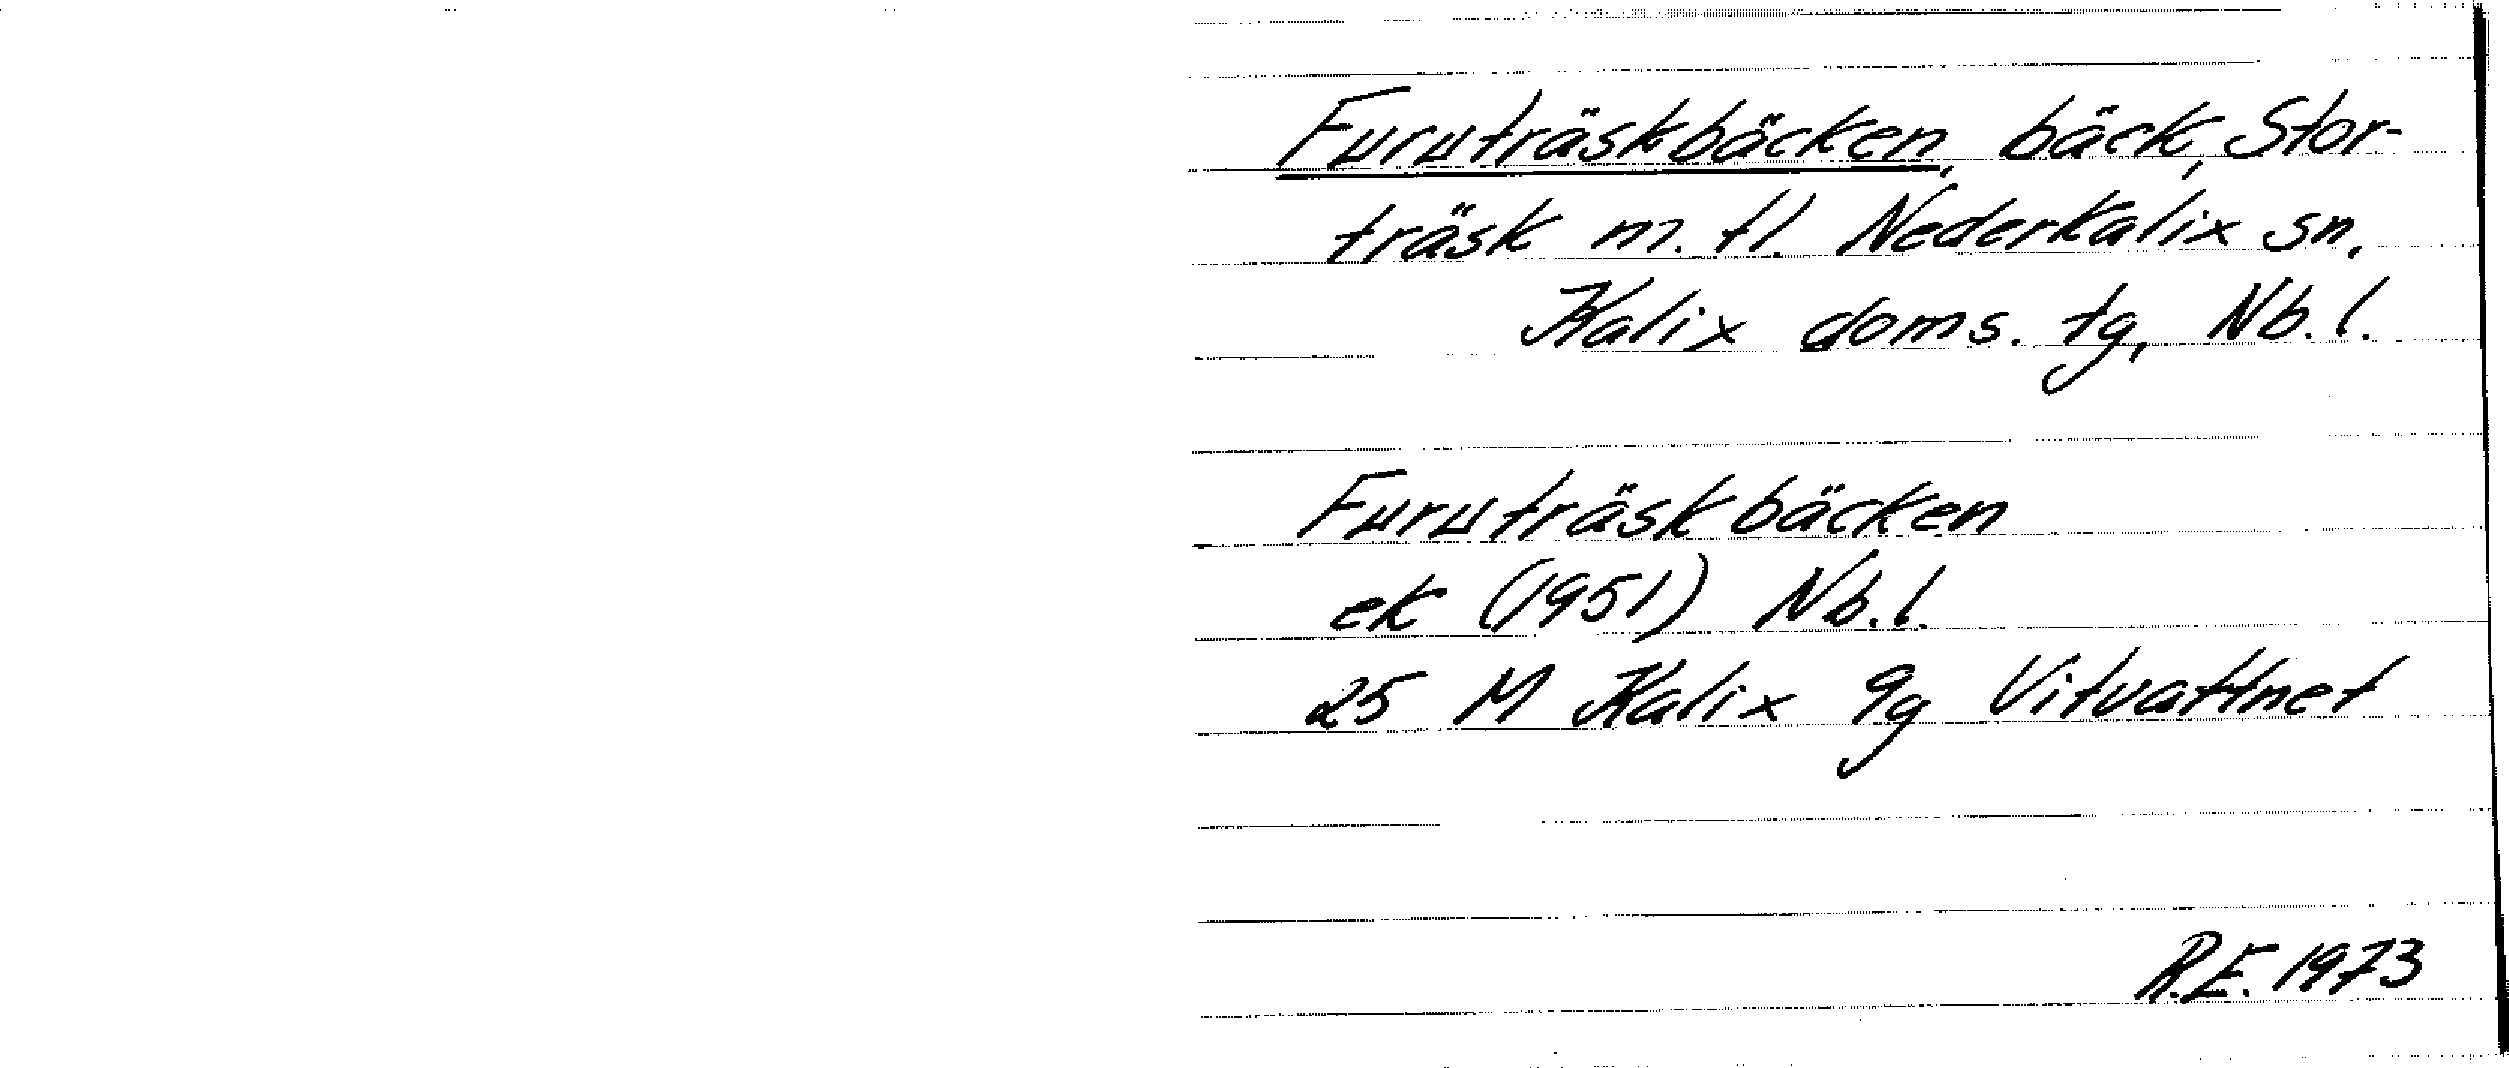 Furuträskbäcken, bäck, Stor-
träsk m. fl. Nederkalix sn,
Kalix doms. tg, Nb. l.
Furuträskbäcken
ek (1951) Nb. l.
25 M Kalix 9g Vitvattnet
R.E. 1973